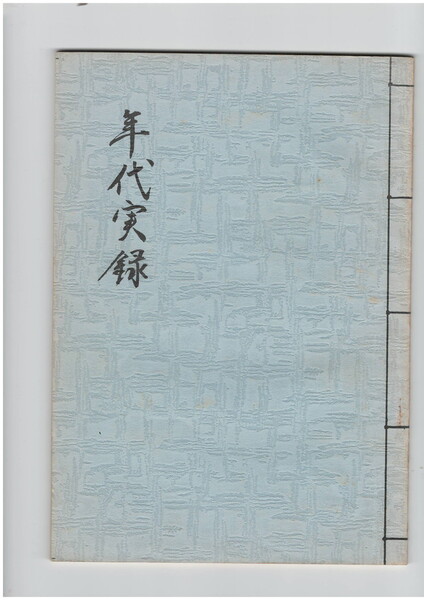 年代実録